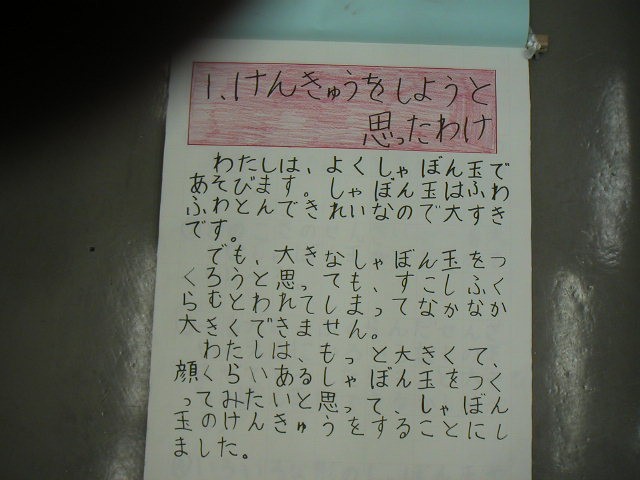 1.けんきゅうをしようと
思ったわけ
わたしは、よくしゃぼん玉で
あそびます。しゃぼん玉はふわ
ふわとんできれいなので大すき
です。
でも、大きなしゃぼん玉をつ
くろうと思っても、すこしふく
らむとわれてしまってなかなか
大きくできません。
わたしは、もっと大きくて、
顔くらいあるしゃぼん玉をつく
ってみたいと思って、しゃぼん
玉のけんきゅうをすることにし
ました。